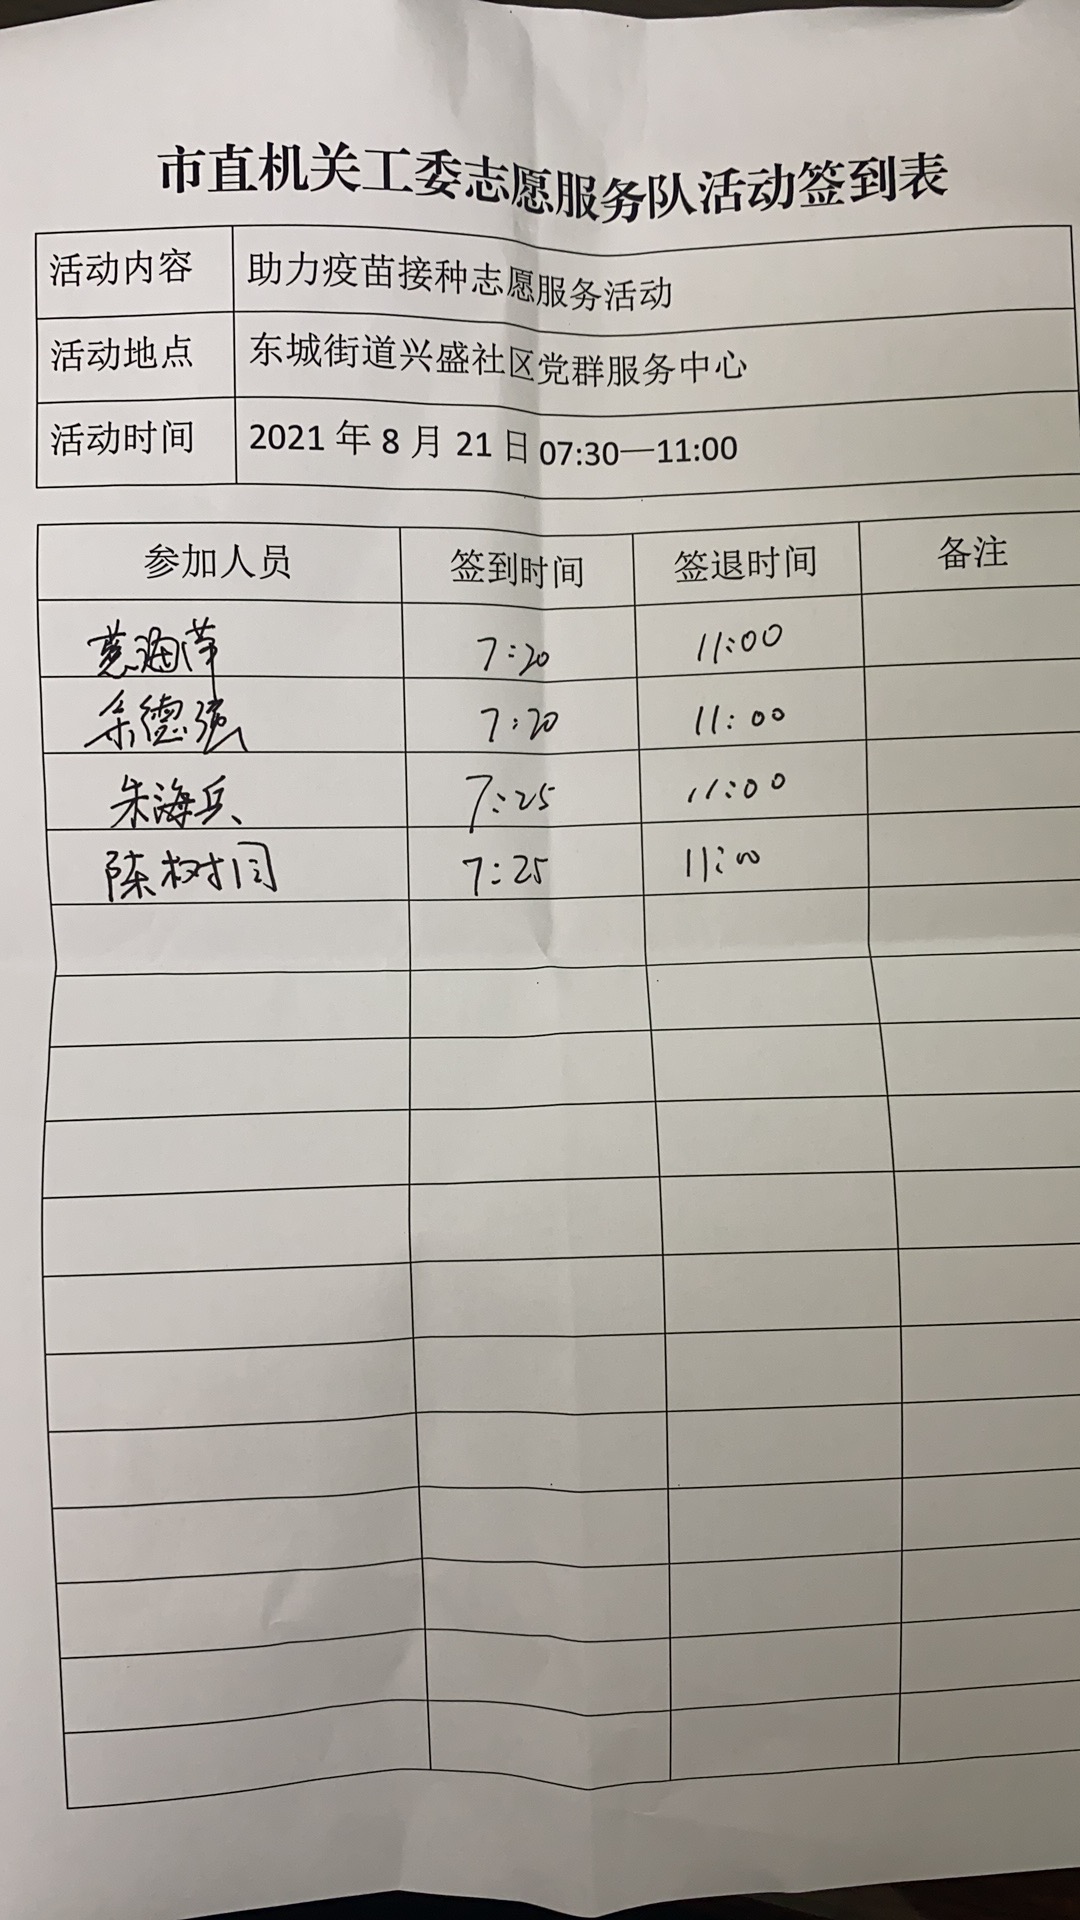 市直机关工委志愿服务队活动签到表
活动内容 助力疫苗接种志愿服务活动
活动地点 东城街道兴盛社区党群服务中心
活动时间 2021年8月21日07:30—11:00
参加人员 签到时间 签退时间 备注
7:20 11:00
德强 7:20 11:00
朱海兵 7:25 11:00
陈树闰 7:25 11:00